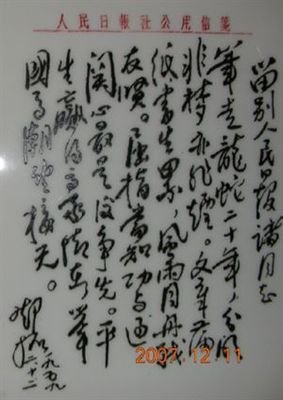 人民日報社公用信箋
留别人民日报诸同志
筆走龍蛇二十年，分明
非梦亦非烟。文章满
纸書生累，風雨同舟战
友贤。屈指當知功与过，
関心最是後争先。平
生赢得豪情在，举
國高潮望接天。
邓拓
一九五九
二、十二
2007.12.11